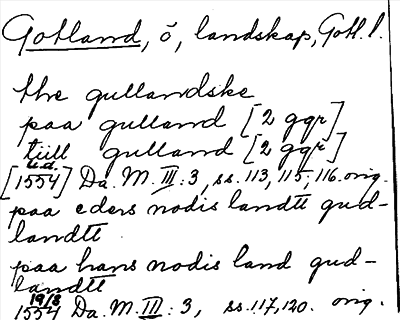 Gotland, ö, landskap, Gotl. l.
the gullandske
paa gulland [2 ggr]
tiill gulland [2 ggr]
[u.d. 1554] Da. M. III: 3, ss. 113, 115, 116. orig.
paa eders nodis landtt gud-
landtt
paa hans nodis land gud-
landtt
19/8 1554 Da. M. III: 3, ss. 117, 120. orig.